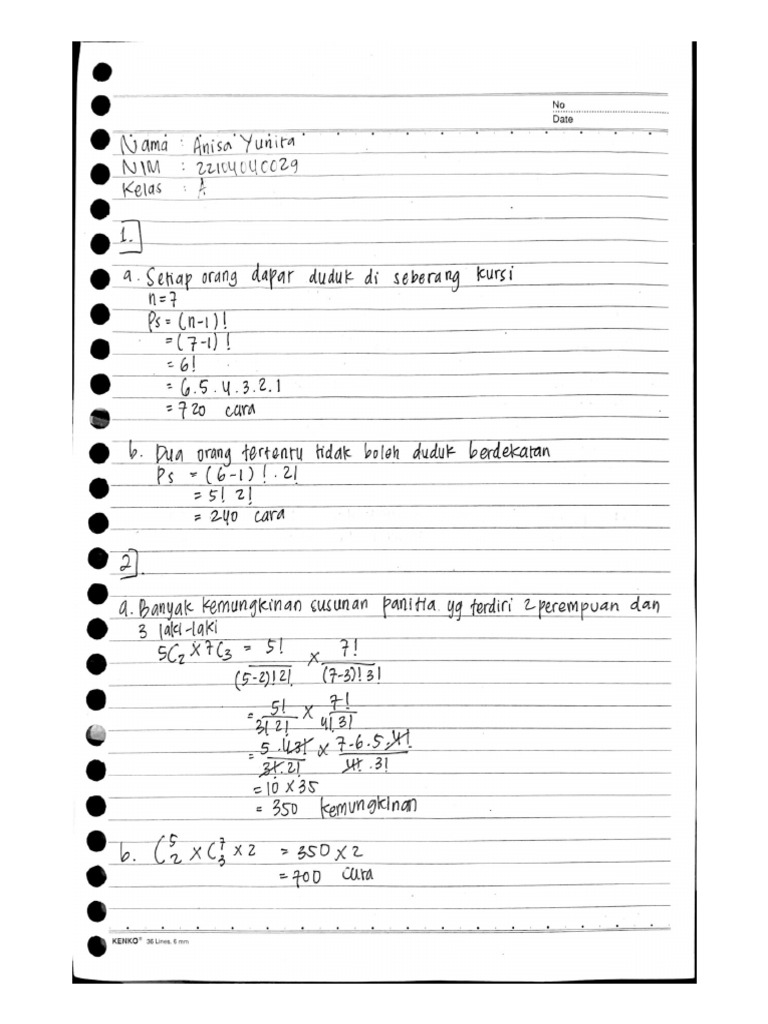 No
Date
Nama : Anisa Yunita
NIM : 22104040029
Kelas : A
1.
a. Setiap orang dapar duduk di seberang kursi
n=7
Ps = (n-1)!
= (7-1)!
= 6!
= 6.5.4.3.2.1
= 720 cara
b. Dua orang tertentu tidak boleh duduk berdekatan
Ps = (6-1)! . 2!
= 5! 2!
= 240 cara
2.
a. Banyak kemungkinan susunan panitia yg terdiri 2 perempuan dan
3 laki-laki
5C2 x 7C3 = 5!/(5-2)!2! x 7!/(7-3)!3!
= 5!/3!2! x 7!/4!3!
= 5.4.3!/3!.2! x 7.6.5.4!/4!.3!
= 10 x 35
= 350 kemungkinan
b. C 5 2 x C 7 3 x 2 = 350 x 2
= 700 cara
KENKO® 36 Lines, 6 mm